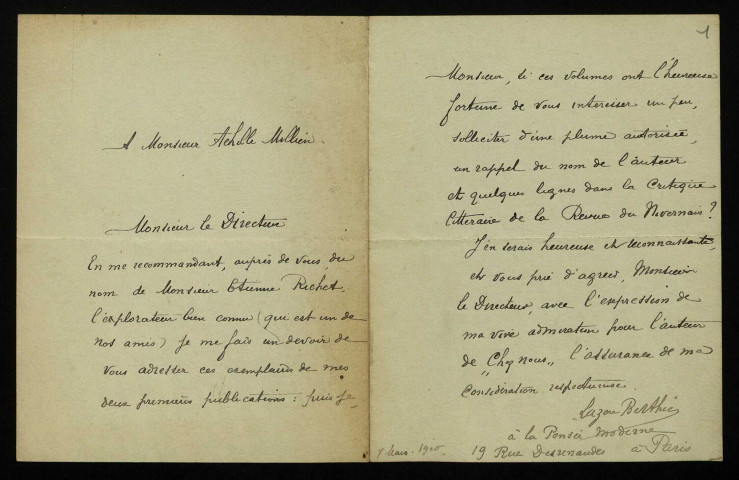 A Monsieur Achille Millien.
Monsieur le Directeur
En me recommandant, auprès de vous, du
nom de Monsieur Etienne Richet.
l'explorateur bien connu (qui est un de
nos amis) je me fais un devoir de
vous adresser ces exemplaires de mes
deux premières publications : puis-je,
7 Mars 1910
1
Monsieur, si ces volumes ont l'heureuse
fortune de vous intéresser un peu,
solliciter d'une plume autorisée,
un rappel du nom de l'auteur
et quelques lignes dans la Critique
littéraire de la Revue du Nivernais ?
J'en serais heureuse et reconnaissante,
et vous prie d'agréer, Monsieur
le Directeur, avec l'expression de
ma vive admiration pour l'auteur
de "Chez nous", l'assurance de ma
Considération respectueuse.
Berthie
à la Pensée Moderne
19 Rue Desrenaudes à Paris